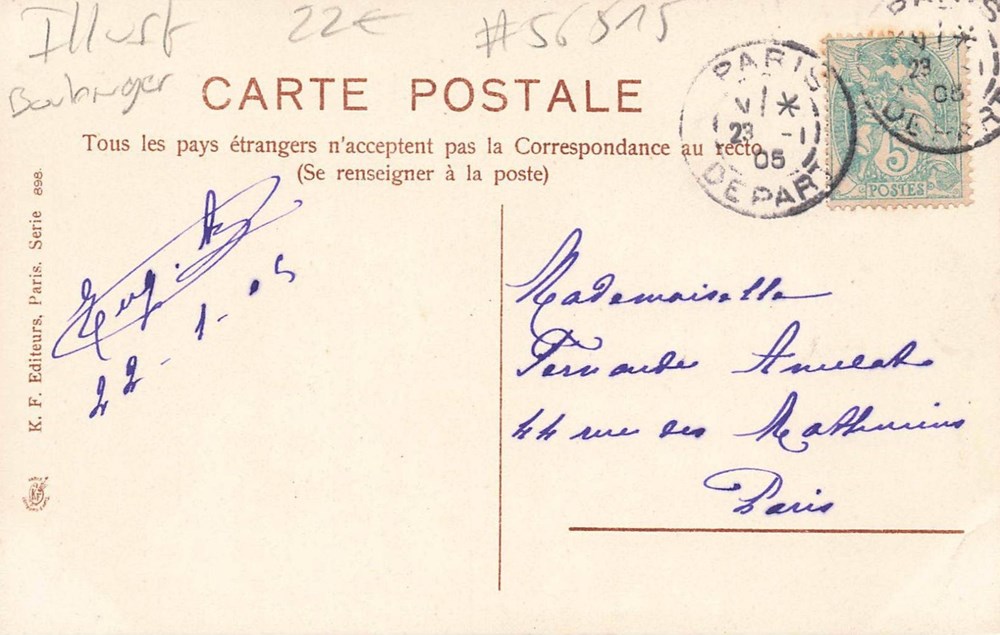 Illust 22€ #56515
CARTE POSTALE
Tous les pays étrangers n'acceptent pas la Correspondance au recto
(Se renseigner à la poste)
K. F. Editeurs, Paris. Serie 898.
22 - 1 - 05
PARIS
23 -1
05
DEPART
PARIS
23 -1
05
DEPART
5
POSTES
Mademoiselle
Fernande
44 rue des Mathurins
Paris